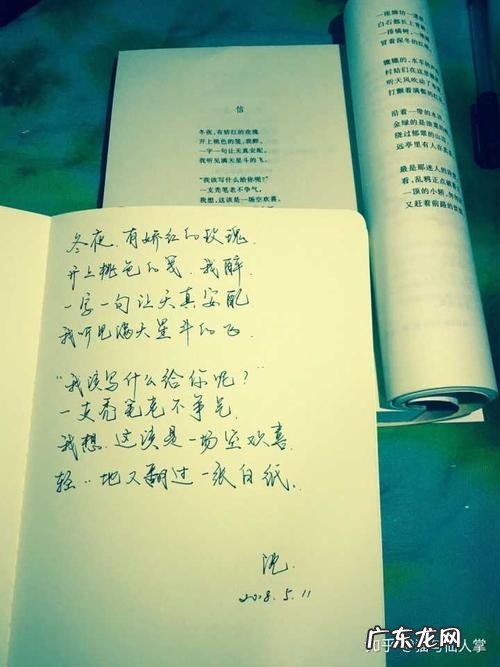 信
冬夜,有娇红的玫瑰
开上桃色的笺,我醉,
一字一句让天真安配,
我听见满天星斗的飞。
“我该写什么给你呢?”
一支秃笔老不争气,
我想,这该是一场空欢喜,
白石都长上青
一排橘树,一
冒着深冬的红
村姑们在这里
听天风吹动了
打颤着满餐的红
沿着一带的水
金绿的是油菜
绕过郁翠的山
远亭里有人在
最是那迷人的
看,乱鸦正点
一顶的小轿,匆
又赶着前路的
冬夜,有娇红的玫瑰
开上桃色的笺,我醉
一字一句让天真安配
我听见满天星斗的飞
“我该写什么给你呢?”
一支秃笔老不争气
我想,这该是一场空欢喜
轻轻地又翻过一张白纸.
2018.5.11
知乎 @猫与仙人掌
广东龙网